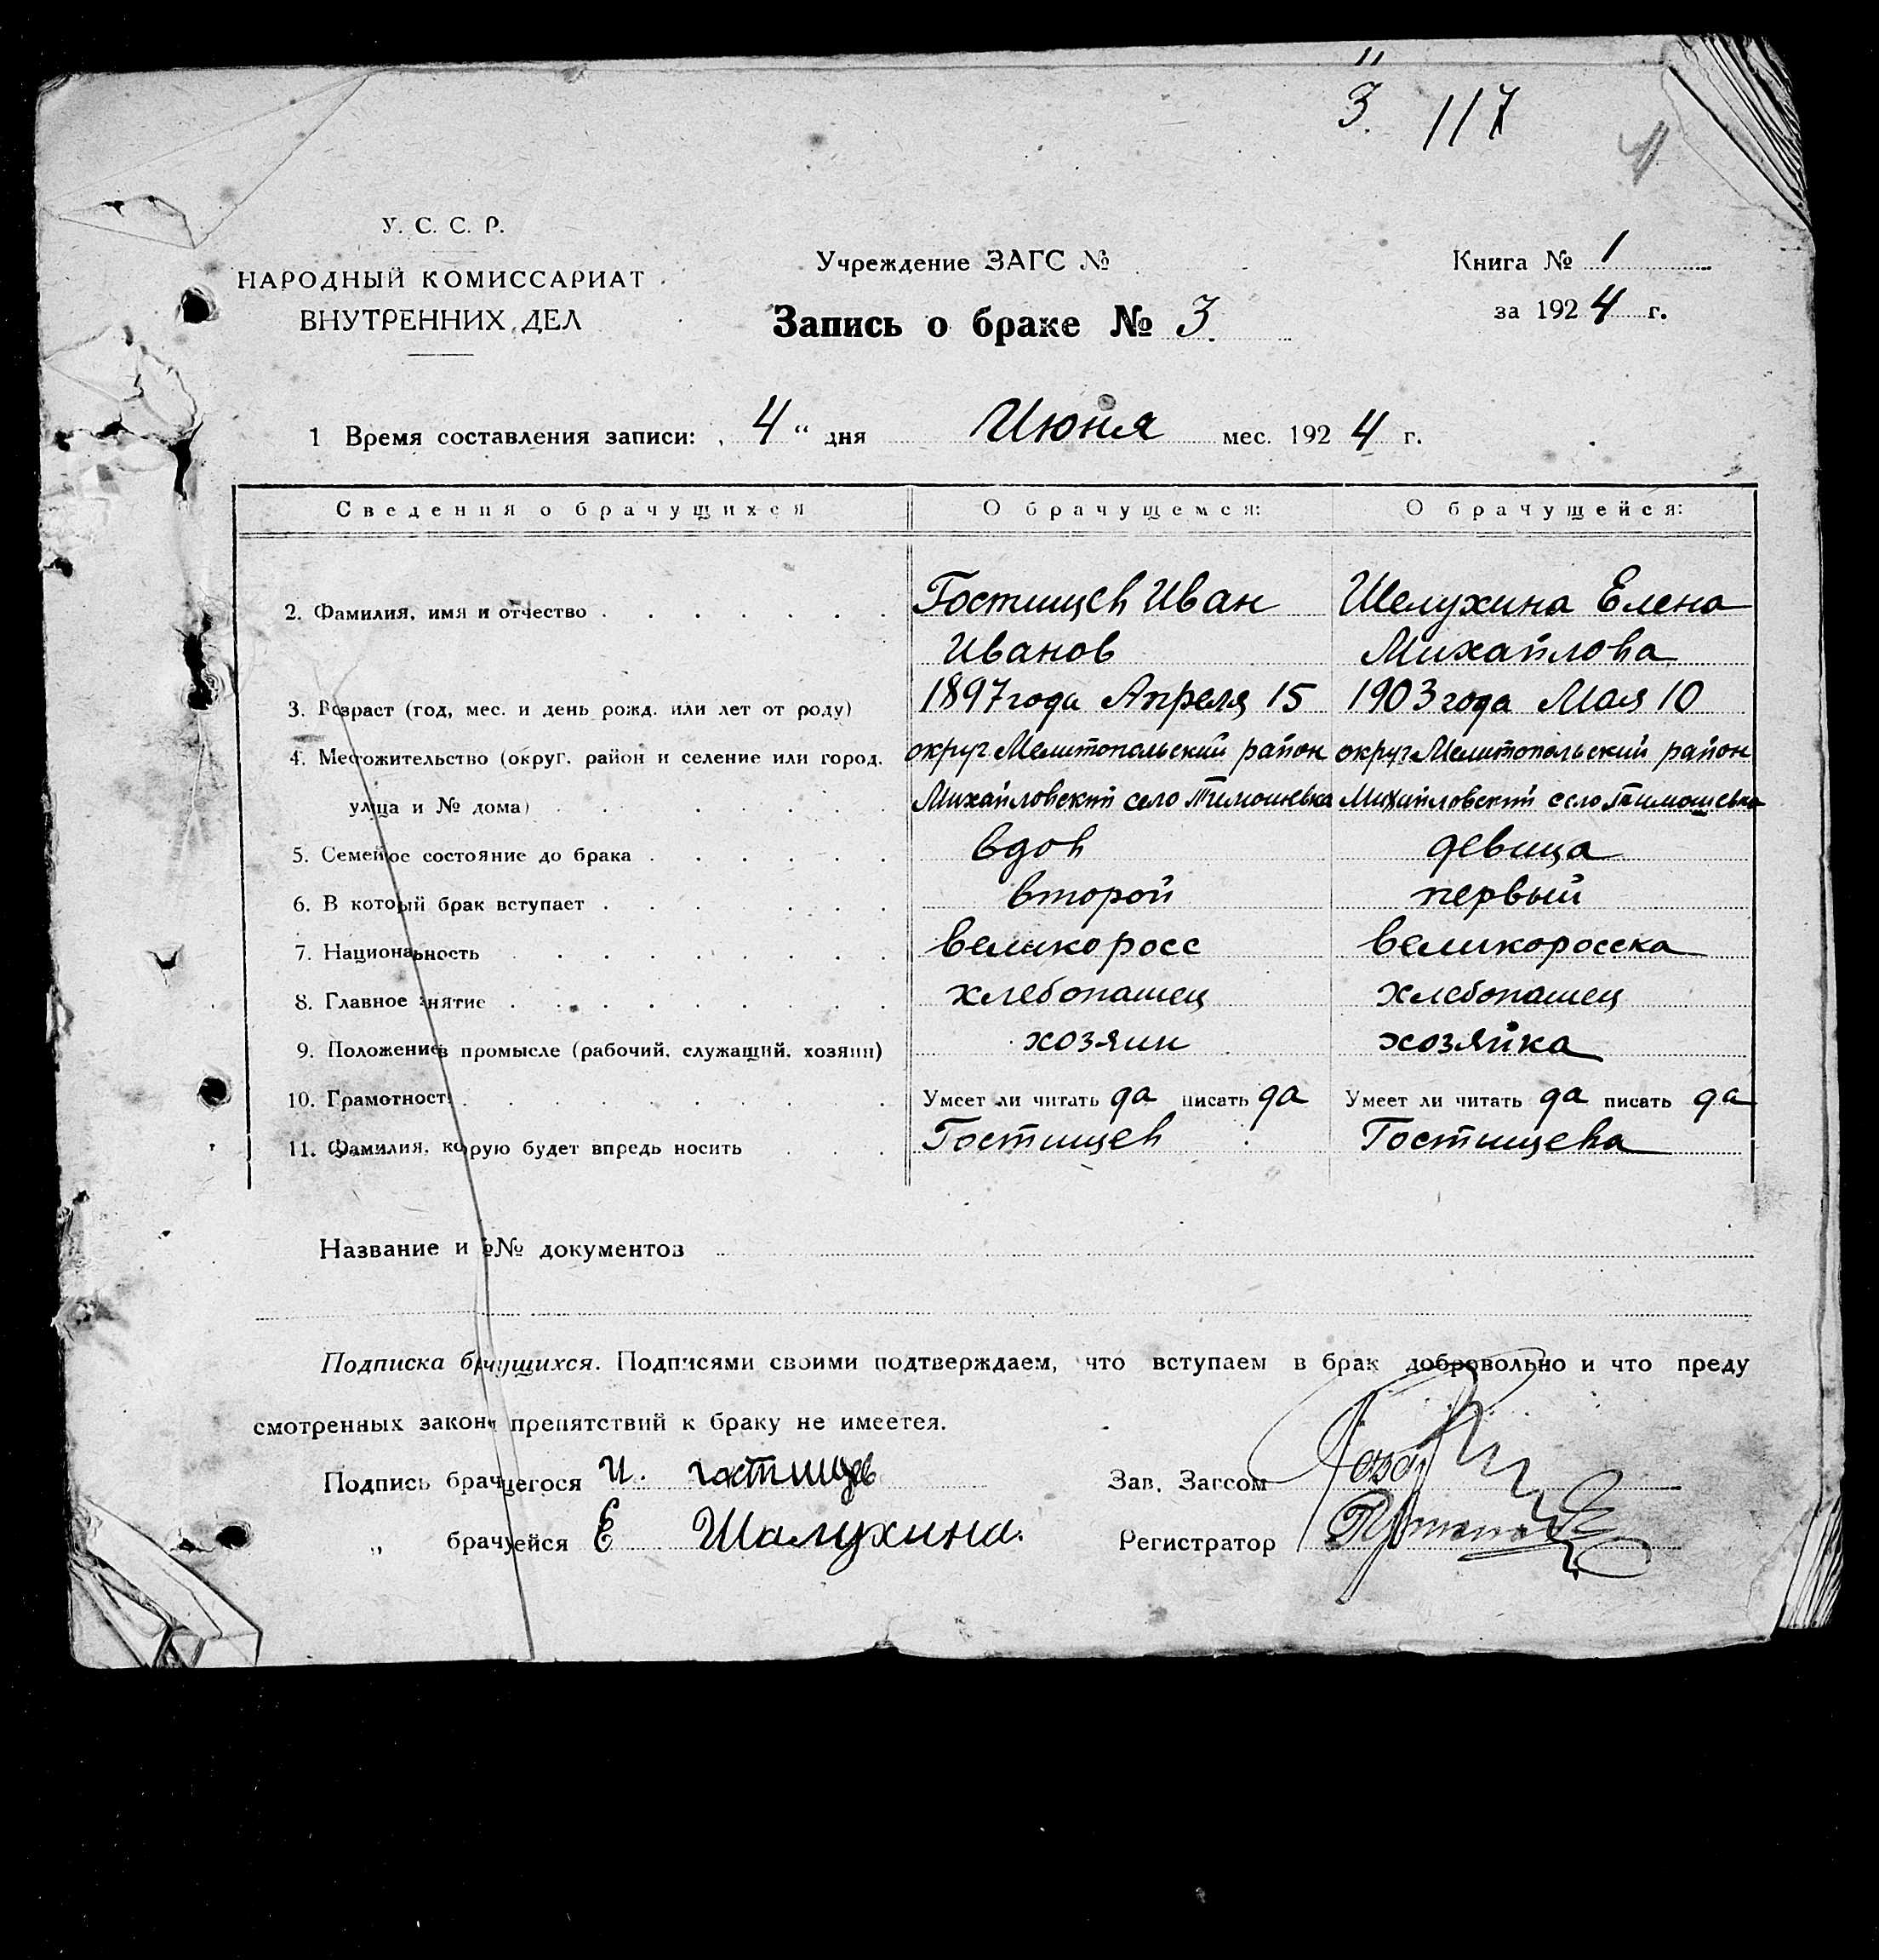 "
3. 117
У. С. С. Р.
НАРОДНЫЙ КОМИССАРИАТ
ВНУТРЕННИХ ДЕЛ
Учреждение ЗАГС №
Запись о браке № 3.
Книга № 1
за 1924 г.
1 Время составления записи: „ 4 “ дня Июня мес. 1924 г.
Сведения о брачущихся О брачущемся: О брачущейся:
2. Фамилия, имя и отчество Гостищев Иван Шелухина Елена
Иванов Михайлова
3. Возраст (год, мес. и день рожд. или лет от роду) 1897 года Апреля 15 1903 года Мая 10
4. Местожительство (округ, район и селение или город, округ Мелитопольский район округ Мелитопольский район
улица и № дома) Михайловский село Тимошевка Михайловский село Тимошевка
5. Семейное состояние до брака вдов девица
6. В который брак вступает второй первый
7. Националньость великоросс великоросска
8. Главное знятие хлебопашец хлебопашец
9. Положение в промысле (рабочий, служащий, хозяин) хозяин хозяйка
10. Грамотност Умеет ли читать да писать да Умеет ли читать да писать да
11. Фамилия, корую будет впредь носить Гостищев Гостищева
Название и №№ документов
Подписка брачущихся. Подписями своими подтверждаем, что вступаем в брак добровольно и что преду
смотренных закон препятствий к браку не имеется.
Подпись брачщегося И. гостищев Зав. Загсом
„ брачуейся Е Шалухина. Регистратор